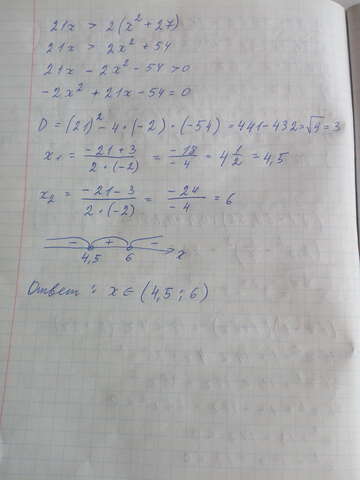 21x > 2(x² + 27)
21x > 2x² + 54
21x - 2x² - 54 > 0
-2x² + 21x - 54 = 0
D = (21)² - 4·(-2)·(-54) = 441 - 432 = √9 = 3
x₁ = (-21+3)/(2·(-2)) = (-18)/(-4) = 4 1/2 = 4,5
x₂ = (-21-3)/(2·(-2)) = (-24)/(-4) = 6
- + -
4,5 6 x
Ответ: x ∈ (4,5; 6)